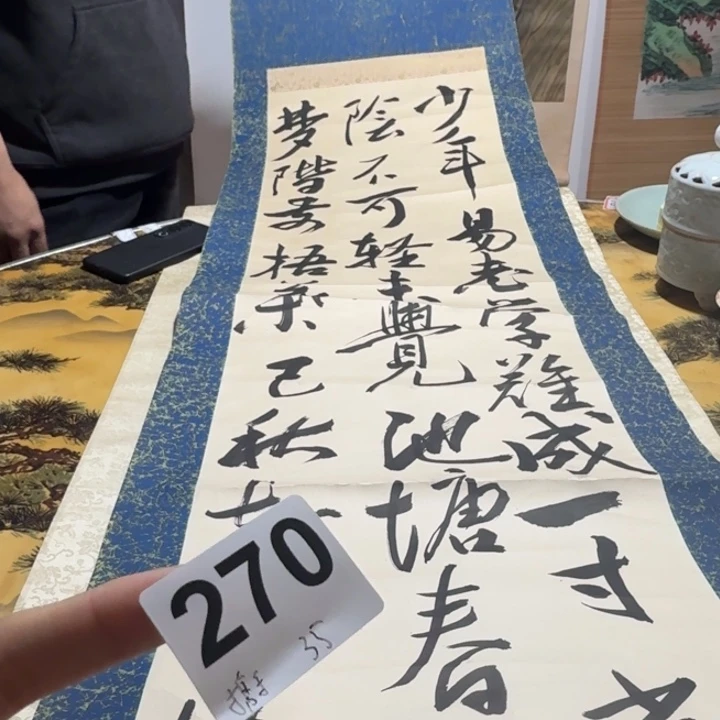 少年易老学難成一寸
陰不可軽未覺池塘春
夢階前梧葉已秋
270
35